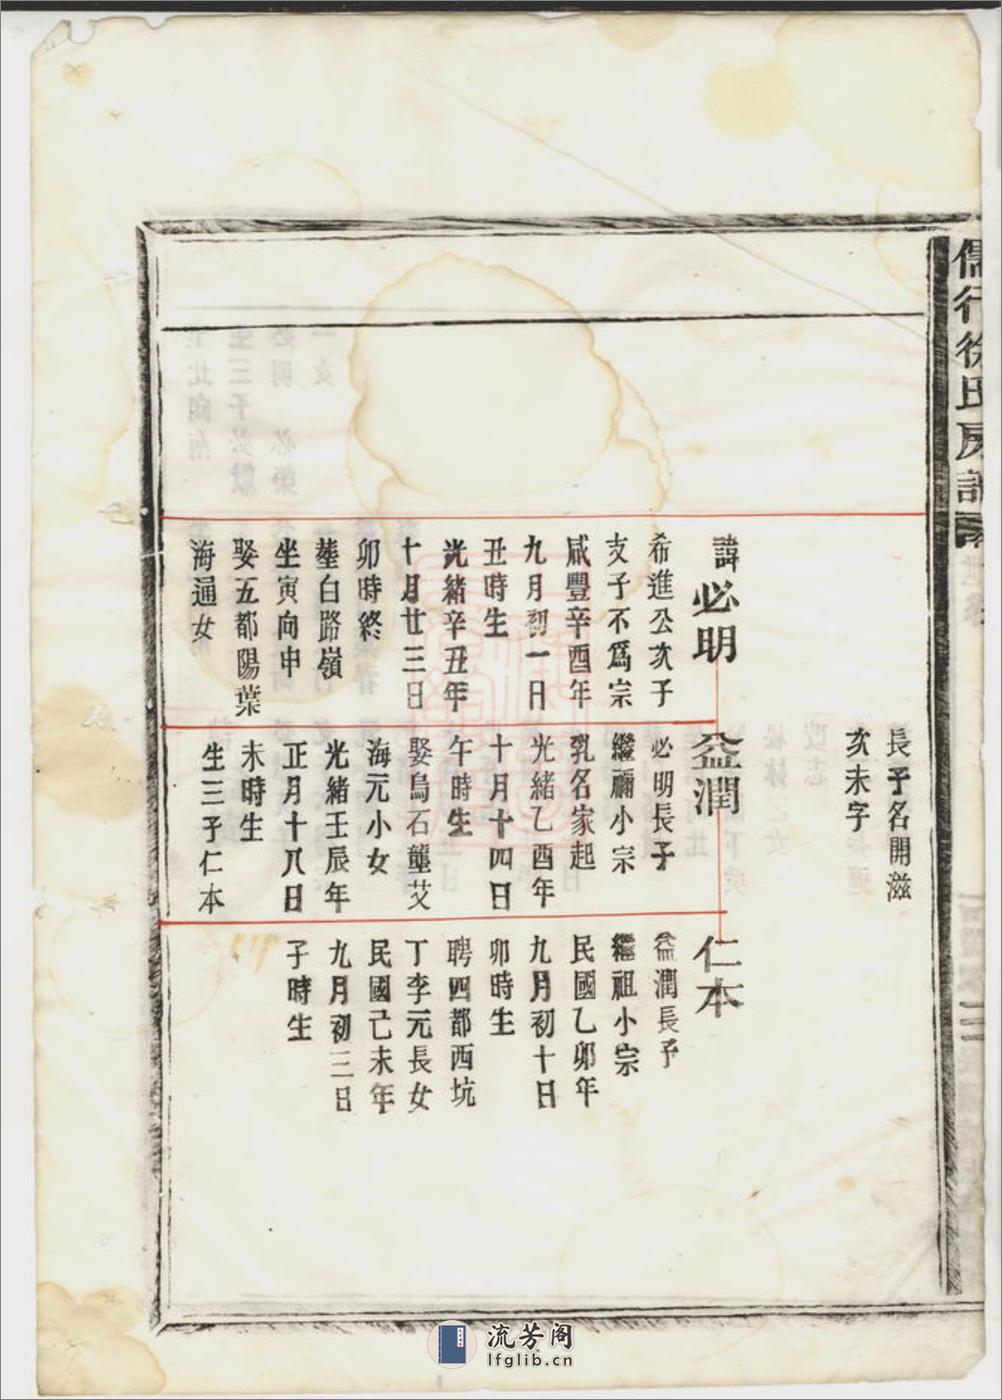 儒行徐氏房譜
長子名開滋
亥未字
諱必明
希進公亥子
支子不為宗
咸豐辛酉年
九月初一日
丑時生
光緒辛丑年
十月廿三日
卯時終
塟白路嶺
坐寅向申
娶五都陽葉
海通女
益潤
必明長子
繼禰小宗
乳名家起
光緒乙酉年
十月十四日
午時生
娶烏石壟艾
海元小女
光緒壬辰年
正月十八日
未時生
生三子仁本
仁本
益潤長子
繼祖小宗
民國乙卯年
九月初十日
卯時生
聘四都西坑
丁李元長女
民國己未年
九月初三日
子時生
流芳阁
lfglib.cn